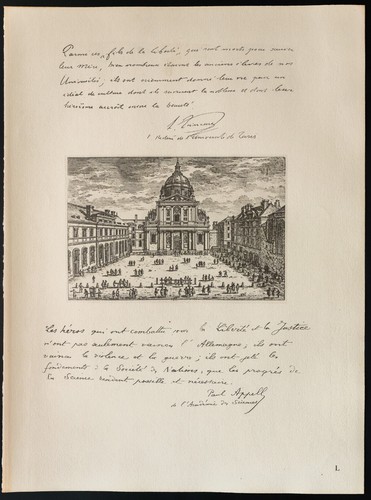 Parmi ces fils de la liberté, qui sont morts pour sauver
leur mère, bien nombreux étaient les anciens élèves de nos
Universités; ils ont vraiment donné leur vie pour un
idéal de culture dont ils sentaient la noblesse et dont leur
héroïsme accroît encore la beauté
l'
de l'Université de Paris
Les héros qui ont combattu pour la Liberté et la Justice
n'ont pas seulement vaincu l'Allemagne; ils ont
vaincu la violence et la guerre; ils ont jeté les
fondements de la Société des Nations, que les progrès de
la Science rendent possible et nécessaire.
Paul Appell
de l'Académie des Sciences
L